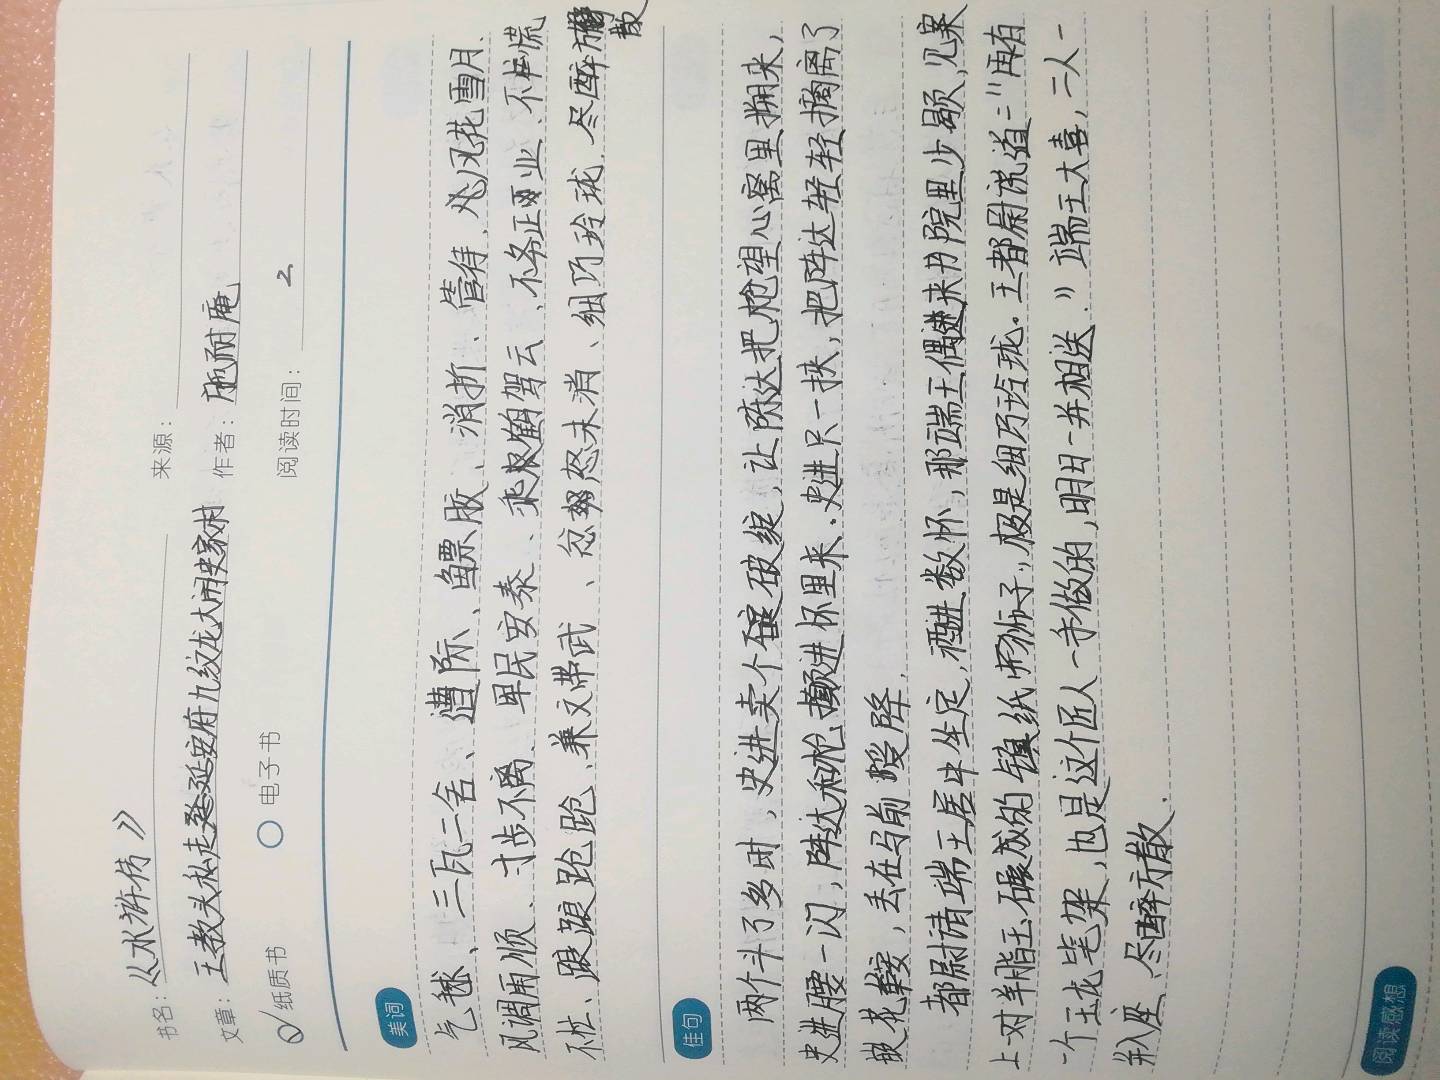 书名：《水浒传》 来源：
文章：王教头私走延安府九纹龙大闹史家村 作者：施耐庵
纸质书 电子书 阅读时间：2
美词
气毬、三瓦二舍、遭际、鳔胶、消折、管待、风花雪月、
风调雨顺、寸步不离、国民安泰、乘鹤驾云、不务正业、不慌
不忙、踉踉跄跄、兼文带武、忿怒未消、细巧玲珑、尽醉方散
佳句
两个斗了多时，史进卖个破绽，让陈达把枪望心窝里搠来，
史进腰一闪，陈达和枪攧进怀里来．史进只一挟，把陈达轻轻摘离了
嵌花鞍，丢在马前受降．
都尉请端王居中坐定，酒进数杯，那端王偶进来书院里少歇，见案
上一对羊脂玉碾成的镇纸狮子，极是细巧玲珑。王都尉说道：“再有
一个玉龙笔架，也是这个匠人一手做的，明日一并相送．”端王大喜，二人一
并入座、尽醉方散．
阅读感想